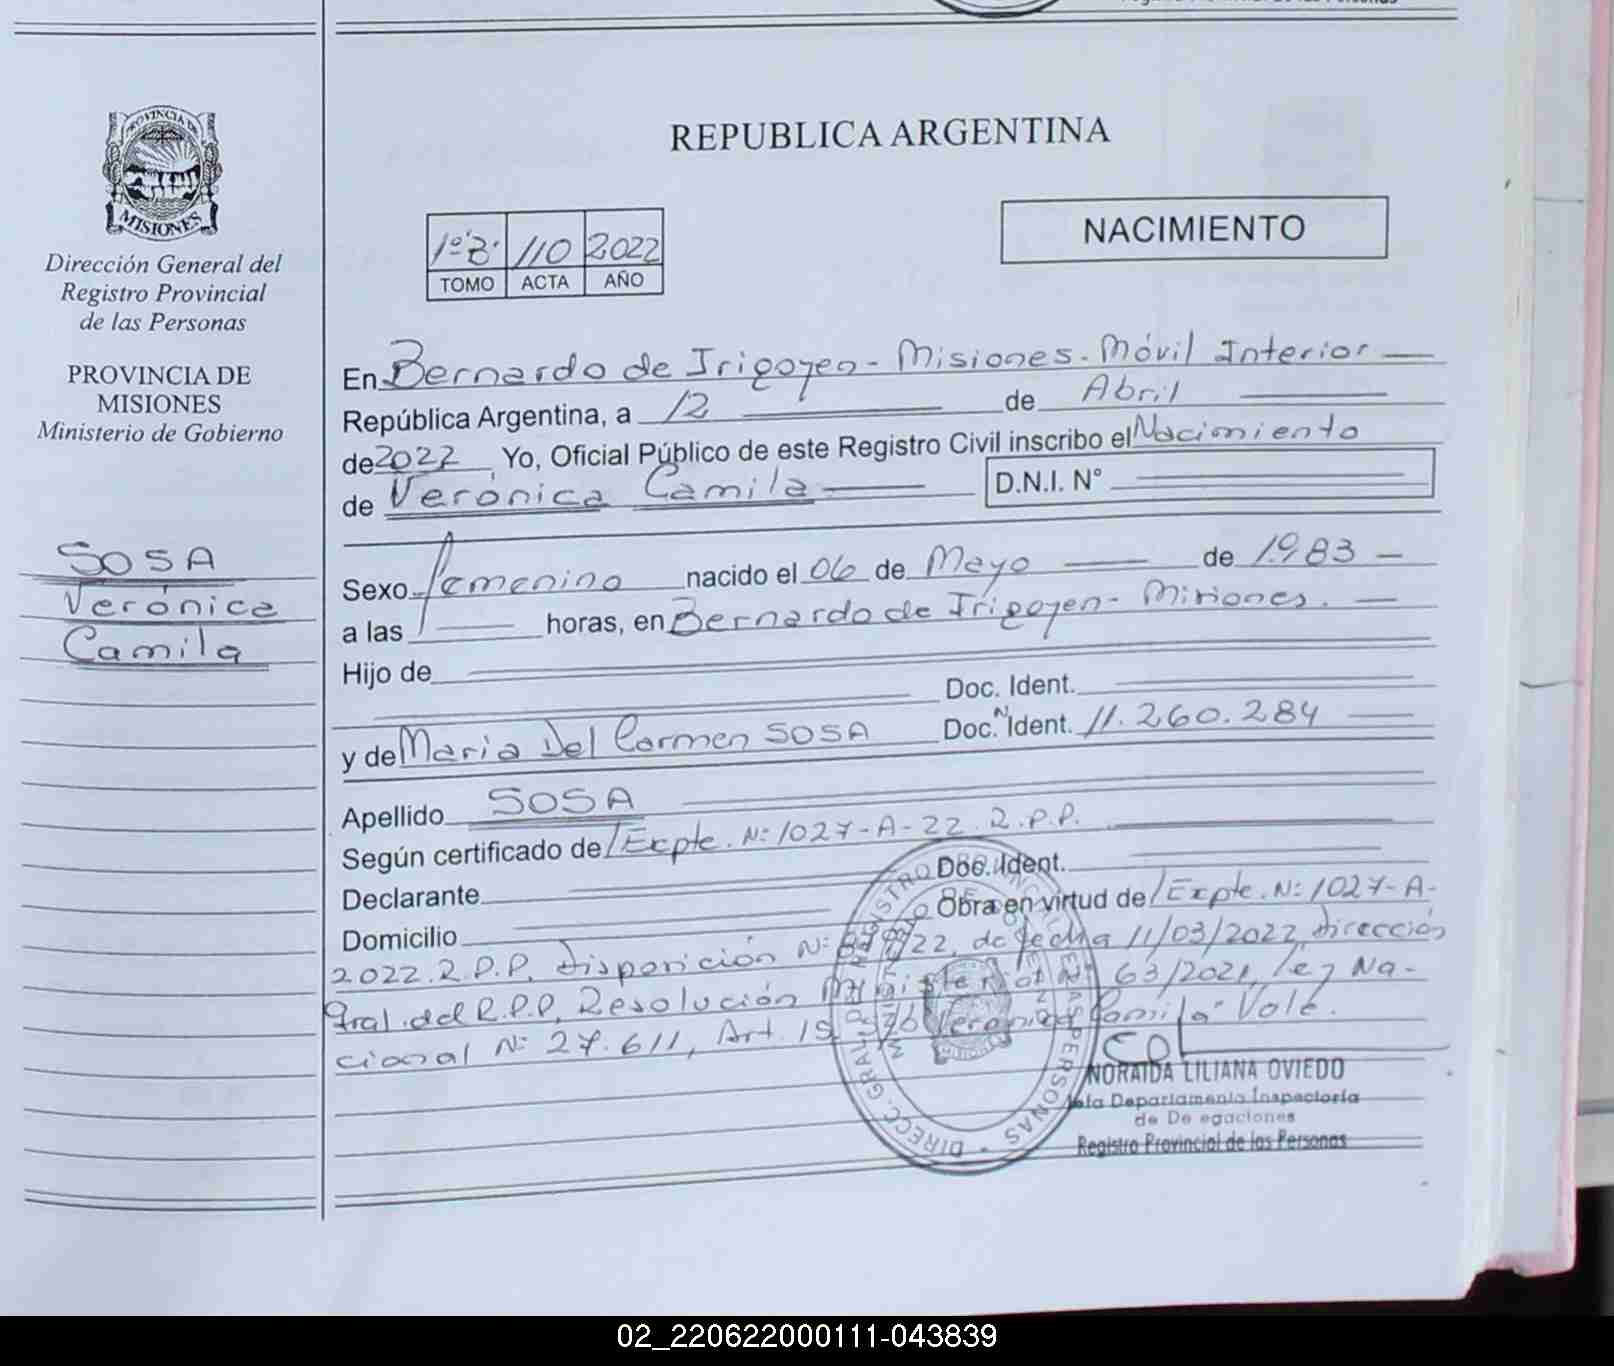 PROVINCIA DE
MISIONES
Dirección General del
Registro Provincial
de las Personas
PROVINCIA DE
MISIONES
Ministerio de Gobierno
SOSA
Verónica
Camila
REPUBLICA ARGENTINA
1º"B" 110 2022
TOMO ACTA AÑO
NACIMIENTO
En Bernardo de Irigoyen - Misiones - Móvil Interior
República Argentina, a 12 de Abril
de 2022 Yo, Oficial Público de este Registro Civil inscribo el Nacimiento
de Verónica Camila D.N.I. N°
Sexo Femenino nacido el 06 de Mayo de 1983
a las horas, en Bernardo de Irigoyen - Misiones.
Hijo de
Doc. Ident.
y de María Del Carmen SOSA Doc. N Ident. 11.260.284
Apellido SOSA
Según certificado de Expte. Nº 1027-A-22.R.P.P.
Declarante Doc. Ident.
Domicilio Obra en virtud de Expte. Nº 1027-A-
2022.R.P.P. Disposición Nº /22, de fecha 11/03/2022, Dirección
Gral. del R.P.P. Resolución Ministerial Nº 63/2021, Ley Na-
cional Nº 27.611, Art. "Verónica Camila" Vale.
NORAIDA LILIANA OVIEDO
Jefa Departamento Inspectoría
de De egaciones
Registro Provincial de las Personas
02_220622000111-043839